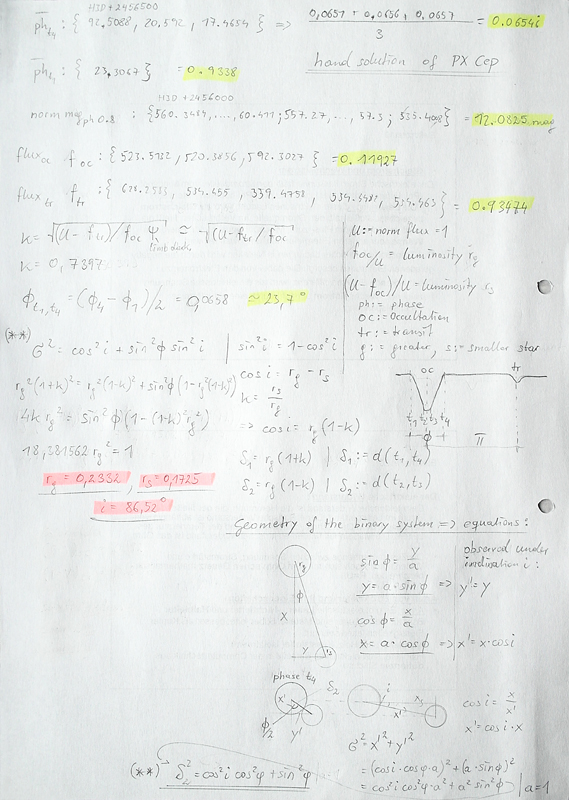 HJD+2456500
ph t4 : { 92.5088, 20.592, 17.4654 } => (0,0651 + 0,0656, 0.0657) / 3 = 0.0654i
hand solution of PX Cep
ph t1 : { 23,3067 } = 0.9338
HJD+2456000
norm mag ph 0.8 : {560.3484, ..., 60.411; 557.27, ..., 57.3 ; 535.408} = 12.0825 mag
flux oc f oc : { 523.5132, 520.3856, 592.3027 } = 0.11927
flux tr f tr : { 628.2533, 534.455, 339.4758, 534.4482, 534.463} = 0.93474
k = √(U - ftr)/foc Ψ limb dark ≈ √(U - ftr / foc
k = 0,7397
Φ t1,t4 = (Φ4 - Φ1)/2 = 0,0658 ≈ 23,7°
U := norm flux = 1
foc/U = luminosity rg
(U - foc)/U = luminosity rs
ph := phase
oc := occultation
tr := transit
g := greater, s := smaller star
(**)
σ² = cos² i + sin² ϕ sin² i | sin² i = 1 - cos² i
rg²(1+k)² = rg²(1-k)² + sin² ϕ (1 - rg²(1-k)²)
4k rg² = sin² ϕ (1 - (1-k)² rg²)
18,381562 rg² = 1
rg = 0,2332 , rs = 0,1725
i = 86,52°
cos i = rg - rs
k = rs / rg
=> cos i = rg (1-k)
δ1 = rg (1+k) | δ1 := d(t1, t4)
δ2 = rg (1-k) | δ2 := d(t2, t3)
oc tr
t1 t2 t3 t4
Φ π
Geometry of the binary system => equations :
rg
ϕ
x
y
rs
sin ϕ = y/a
y = a · sin ϕ => y' = y
cos ϕ = x/a
x = a · cos ϕ => x' = x · cos i
observed under
inclination i :
phase t4
x'
δ2
ϕ/2 y'
i
x
x'
cos i = x / x'
x' = cos i · x
σ² = x'² + y'²
= (cos i · cos φ · a)² + (a · sin φ)²
= cos² i cos² φ · a² + a² sin² φ | a = 1
(**) δ2² = cos² i cos² φ + sin² φ